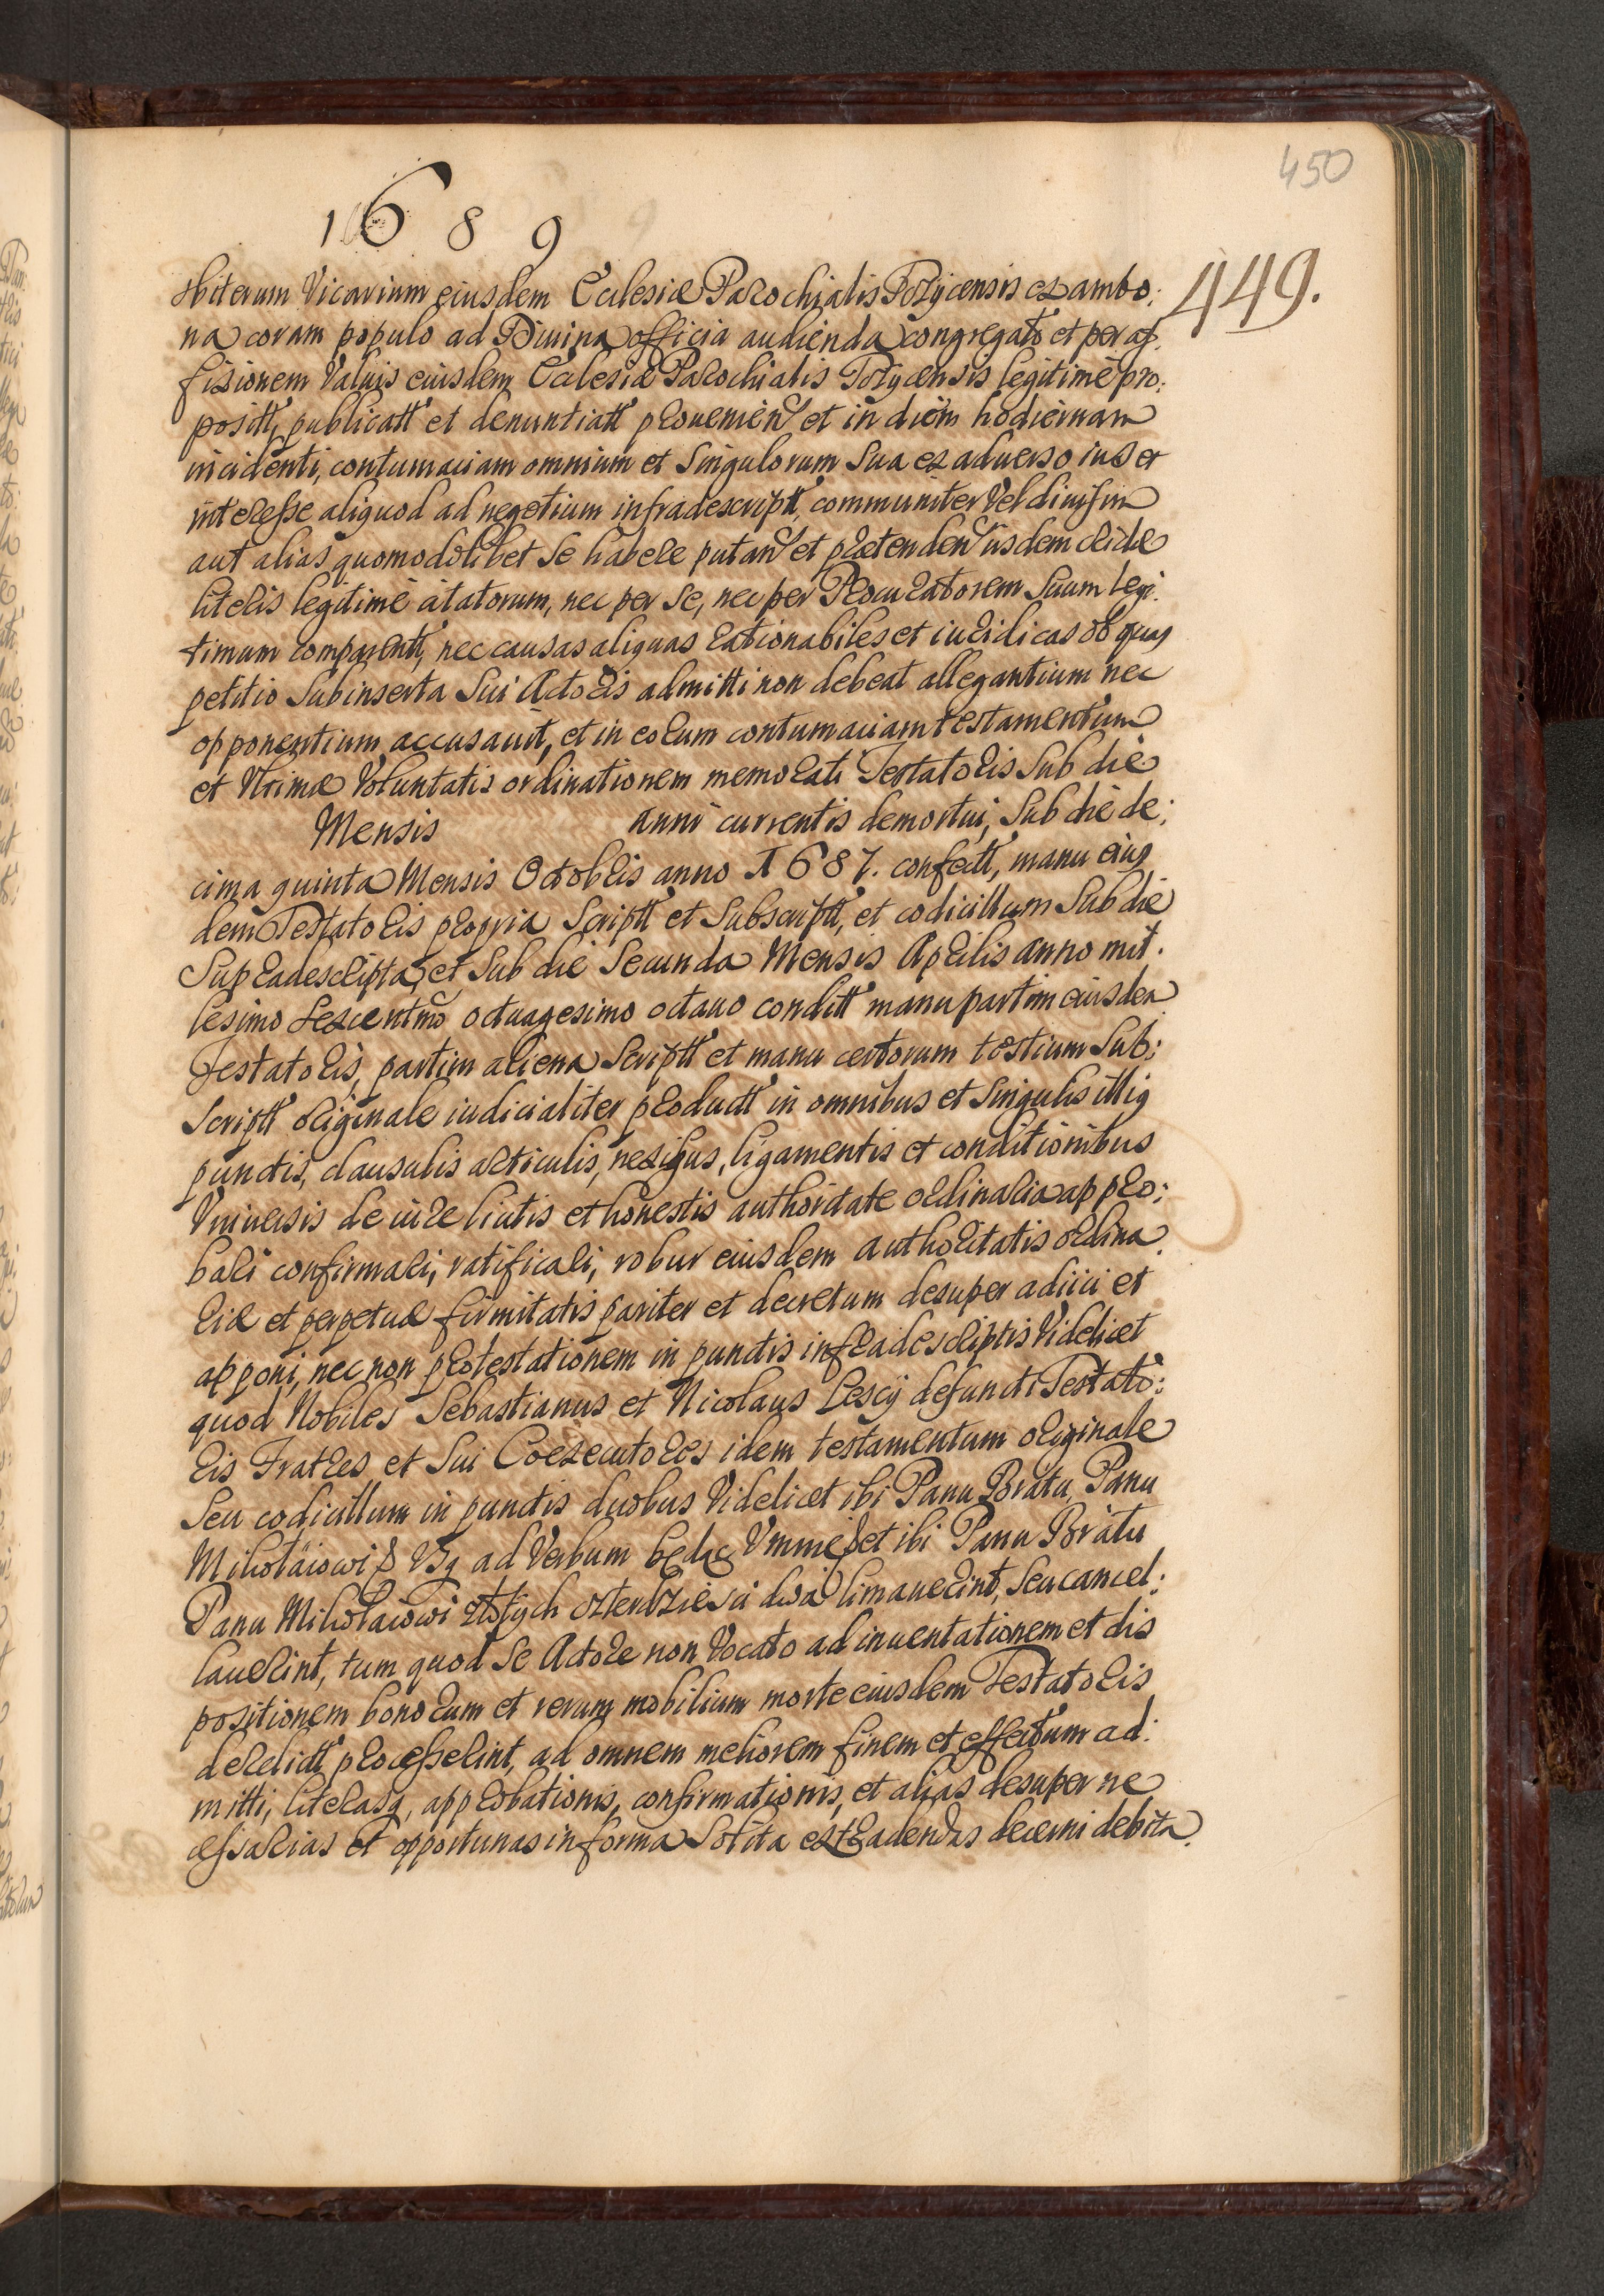 450
1689
449.
biterum Vicarium eiusdem Ecclesiæ Parochialis Tozycensis ex ambo:
na coram populo ad Diuina officia audienda congregato et per af:
fixionem Valuis eiusdem Ecclesiæ Parochialis Tozycensis legitime pro:
positt, publicatt et denuntiatt prouenien et in diem hodiernam
incidenti, contumaciam omnium et Singulorum Sua ex aduerso ius et
interesse aliquod ad negotium infradescriptt, communiter Vel diuisim
aut alias quomodolibet Se habere putan et prætenden iisdem
literis legitime citatorum, nec per Se, nec per Procuratorem Suum legi:
timum comparentt, nec causas aliquas rationabiles et iuridicas ob quas
petitio Subinserta Sui Actoris admitti non debeat allegantium nec
opponentium accusauit, et in eorum contumaciam testamentum
et Vltimæ Voluntatis ordinationem memorati Testatoris Sub die
Mensis anni currentis demortui, Sub die de:
cima quinta Mensis Octobris anno 1687. confectt, manu eius
dem Testatoris propria Scriptt et Subscriptt, et codicillum Sub die
Supradescripta, et Sub die Secunda Mensis Aprilis anno mil:
lesimo Sexcentmo octuagesimo octauo conditt manu partim eiusdem
Testatoris, partim aliena Scriptt et manu certorum testium Sub:
Scriptt originale iudicialiter productt in omnibus et Singulis illis
punctis, clausulis articulis, nexibus, ligamentis et conditionibus
Vniuersis de iure licitis et honestis authoritate ordinaria appro:
bari confirmari, ratificari, robur eiusdem authoritatis ordina:
riæ et perpetuæ firmitatis pariter et decretum desuper adiici et
apponi, nec non protestationem in punctis infradescriptis Videlicet
quod Nobiles Sebastianus et Nicolaus Lescij defuncti Testato:
ris Fratres et Sui Coexecutores idem testamentum originale
Seu codicillum in punctis duobus Videlicet ibi Panu Bratu, Panu
Mikołaiowi Vsq ad Verbum będąc Vmnie et ibi Panu Bratu
Panu Mikołaiowi złotych czterdzieści dwa limauerint, Seu cancel:
lauerint, tum quod Se Actore non Vocato ad inuentationem et dis
positionem bonorum et rerum mobilium morte eiusdem Testatoris
derelictt processerint, ad omnem meliorem finem et effectum ad:
mitti, literasq, approbationis, confirmationis, et alias desuper ne
cessarias et opportunas in forma Solita extradendas decerni debita